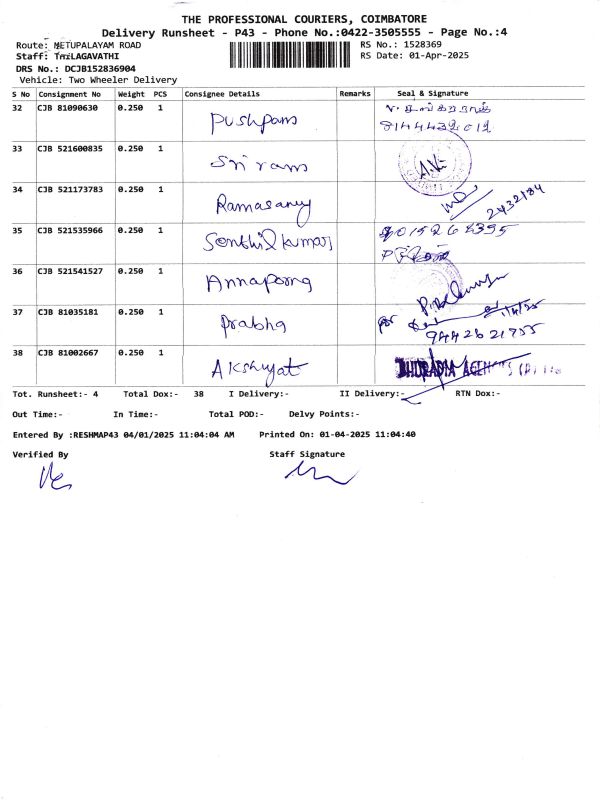 THE PROFESSIONAL COURIERS, COIMBATORE
Delivery Runsheet - P43 - Phone No.:0422-3505555 - Page No.:4
Route: METUPALAYAM ROAD RS No.: 1528369
Staff: THILAGAVATHI RS Date: 01-Apr-2025
DRS No.: DCJB152836904
Vehicle: Two Wheeler Delivery
S No Consignment No Weight PCS Consignee Details Remarks Seal & Signature
32 CJB 81090630 0.250 1 Pushpam
33 CJB 521600835 0.250 1 Sri ram
34 CJB 521173783 0.250 1 Ramasamy
35 CJB 521535966 0.250 1 Senthil kumar
36 CJB 521541527 0.250 1 Annaporna
37 CJB 81035181 0.250 1 Prabha 9442621755
38 CJB 81002667 0.250 1 Akshyat DHURADIA AGENCIES (P)
Tot. Runsheet:- 4 Total Dox:- 38 I Delivery:- II Delivery:- RTN Dox:-
Out Time:- In Time:- Total POD:- Delvy Points:-
Entered By :RESHMAP43 04/01/2025 11:04:04 AM Printed On: 01-04-2025 11:04:40
Verified By Staff Signature